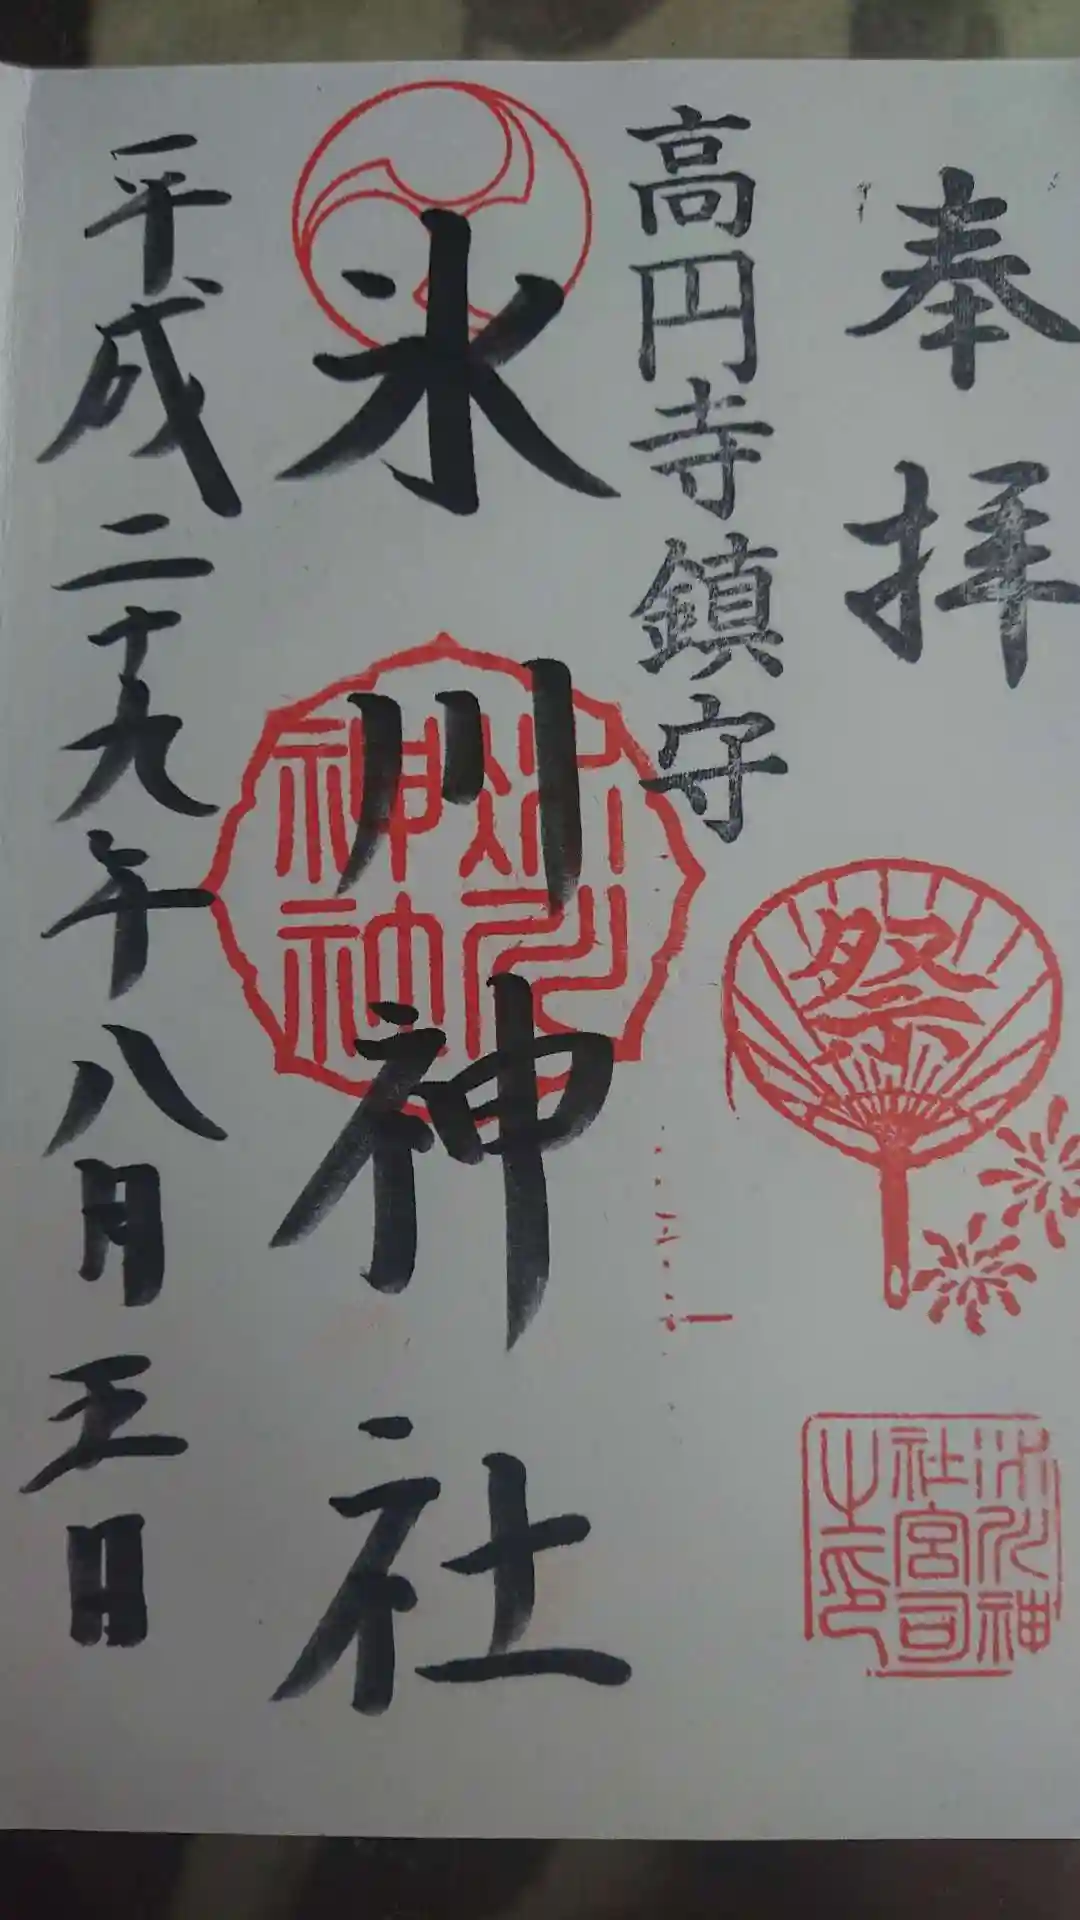 奉拝
高円寺鎮守
氷川神社
氷川
神社
祭
氷川神
社宮司
之印
平成二十九年八月五日